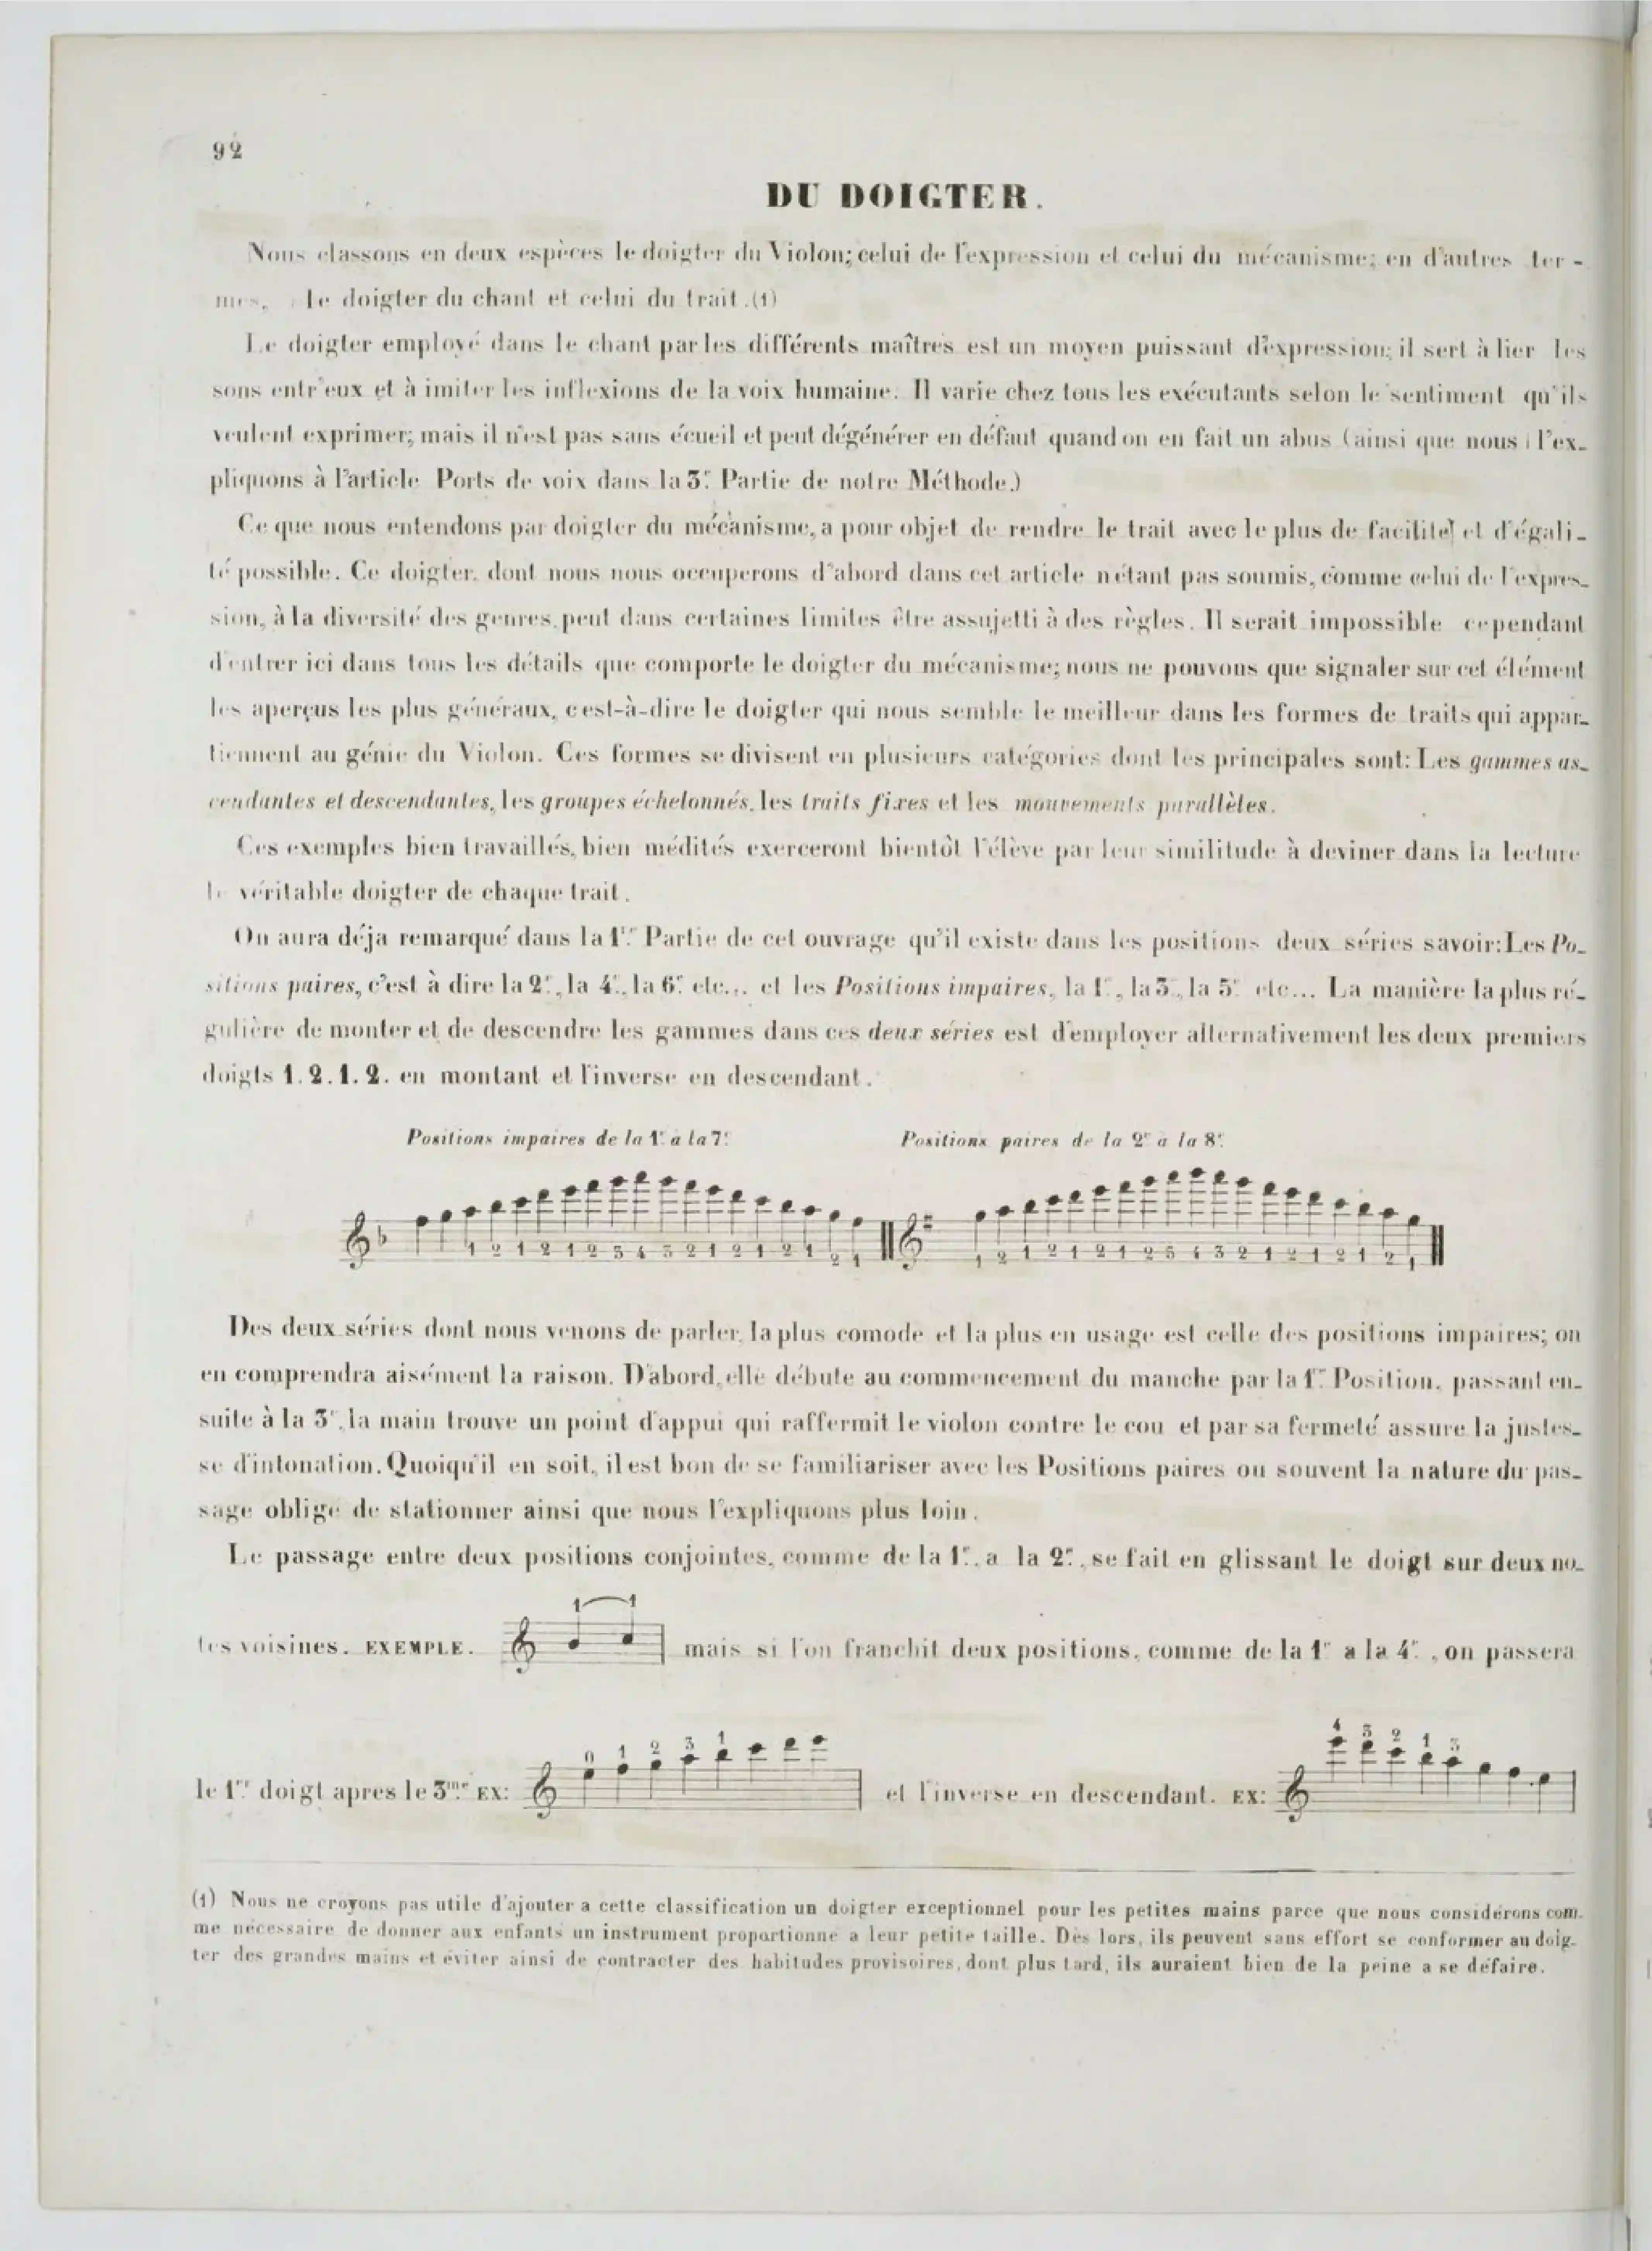 92
DU DOIGTER.
Nous classons en deux espèces le doigter du Violon; celui de l'expression et celui du mécanisme; en d'autres ter-
mes, le doigter du chant et celui du trait.(1)
Le doigter employé dans le chant par les différents maîtres est un moyen puissant d'expression; il sert à lier les
sons entr'eux et à imiter les inflexions de la voix humaine. Il varie chez tous les exécutants selon le sentiment qu'ils
veulent exprimer; mais il n'est pas sans écueil et peut dégénérer en défaut quand on en fait un abus (ainsi que nous l'ex-
pliquons à l'article Ports de voix dans la 3e. Partie de notre Méthode.)
Ce que nous entendons par doigter du mécanisme, a pour objet de rendre le trait avec le plus de facilité et d'égali-
té possible. Ce doigter, dont nous nous occuperons d'abord dans cet article n'étant pas soumis, comme celui de l'expres-
sion, à la diversité des genres, peut dans certaines limites être assujetti à des règles. Il serait impossible cependant
d'entrer ici dans tous les détails que comporte le doigter du mécanisme; nous ne pouvons que signaler sur cet élément
les aperçus les plus généraux, c'est-à-dire le doigter qui nous semble le meilleur dans les formes de traits qui appar-
tiennent au génie du Violon. Ces formes se divisent en plusieurs catégories dont les principales sont: Les gammes as-
cendantes et descendantes, les groupes échelonnés, les traits fixes et les mouvements parallèles.
Ces exemples bien travaillés, bien médités exerceront bientôt l'élève par leur similitude à deviner dans la lecture
le véritable doigter de chaque trait.
On aura déja remarqué dans la 1re. Partie de cet ouvrage qu'il existe dans les positions deux séries savoir: Les Po-
sitions paires, c'est à dire la 2e., la 4e., la 6e. etc... et les Positions impaires, la 1e., la 3e., la 5e. etc... La manière la plus ré-
gulière de monter et de descendre les gammes dans ces deux séries est d'employer alternativement les deux premiers
doigts 1. 2. 1. 2. en montant et l'inverse en descendant.
Positions impaires de la 1e. a la 7e. Positions paires de la 2e a la 8e.
1 2 1 2 1 2 3 4 3 2 1 2 1 2 1 2 1 1 2 1 2 1 2 1 2 3 4 3 2 1 2 1 2 1 2 1
Des deux séries dont nous venons de parler, la plus comode et la plus en usage est celle des positions impaires; on
en comprendra aisément la raison. D'abord, elle débute au commencement du manche par la 1re. Position, passant en-
suite à la 3e., la main trouve un point d'appui qui raffermit le violon contre le cou et par sa fermeté assure la justes-
se d'intonation. Quoiqu'il en soit, il est bon de se familiariser avec les Positions paires ou souvent la nature du pas-
sage oblige de stationner ainsi que nous l'expliquons plus loin.
Le passage entre deux positions conjointes, comme de la 1e. a la 2e., se fait en glissant le doigt sur deux no-
1 1
tes voisines. EXEMPLE. mais si l'on franchit deux positions, comme de la 1e a la 4e., on passera
0 1 2 3 1 4 3 2 1 3
le 1er. doigt apres le 3me. EX: et l'inverse en descendant. EX:
(1) Nous ne croyons pas utile d'ajouter a cette classification un doigter exceptionnel pour les petites mains parce que nous considérons com-
me nécessaire de donner aux enfants un instrument proportionné a leur petite taille. Dès lors, ils peuvent sans effort se conformer au doig-
ter des grandes mains et éviter ainsi de contracter des habitudes provisoires, dont plus tard, ils auraient bien de la peine a se défaire.